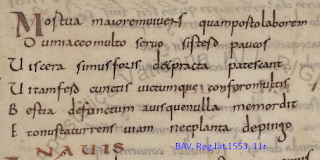 Mostua maiorem uiuens quam posto laborem
Dum iaceo multo seruo sistesd paucos
Viscera si mus foris despracta patescant
Vitam fesd cunctis victumque confero multis
Bestia defunctum auis que nulla memordit
Et onusta currens uiam nec planta depingo
NAVIS
BAV, Reg.lat.1553, 11r